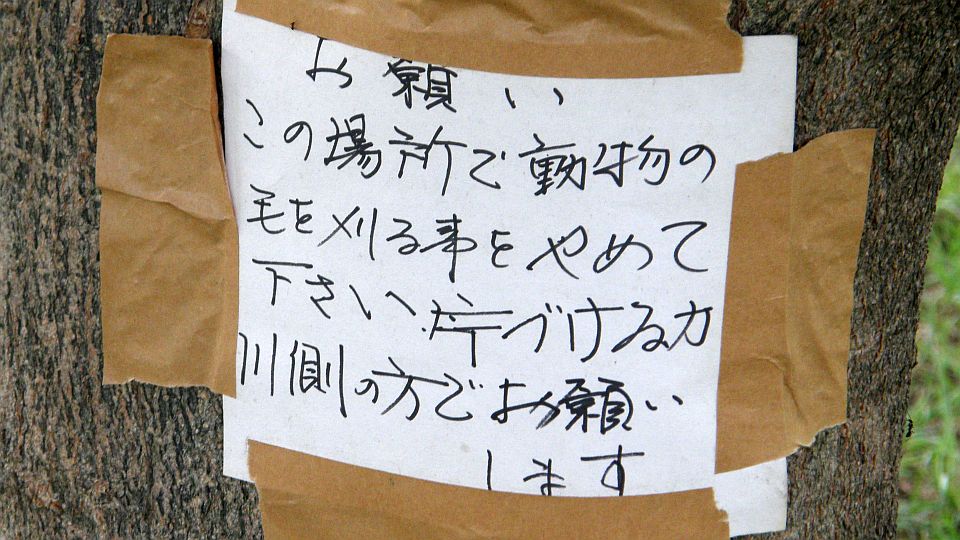 お願い
この場所で動物の
毛を刈る事をやめて
下さい 片づけるカ
川側の方でお願い
します